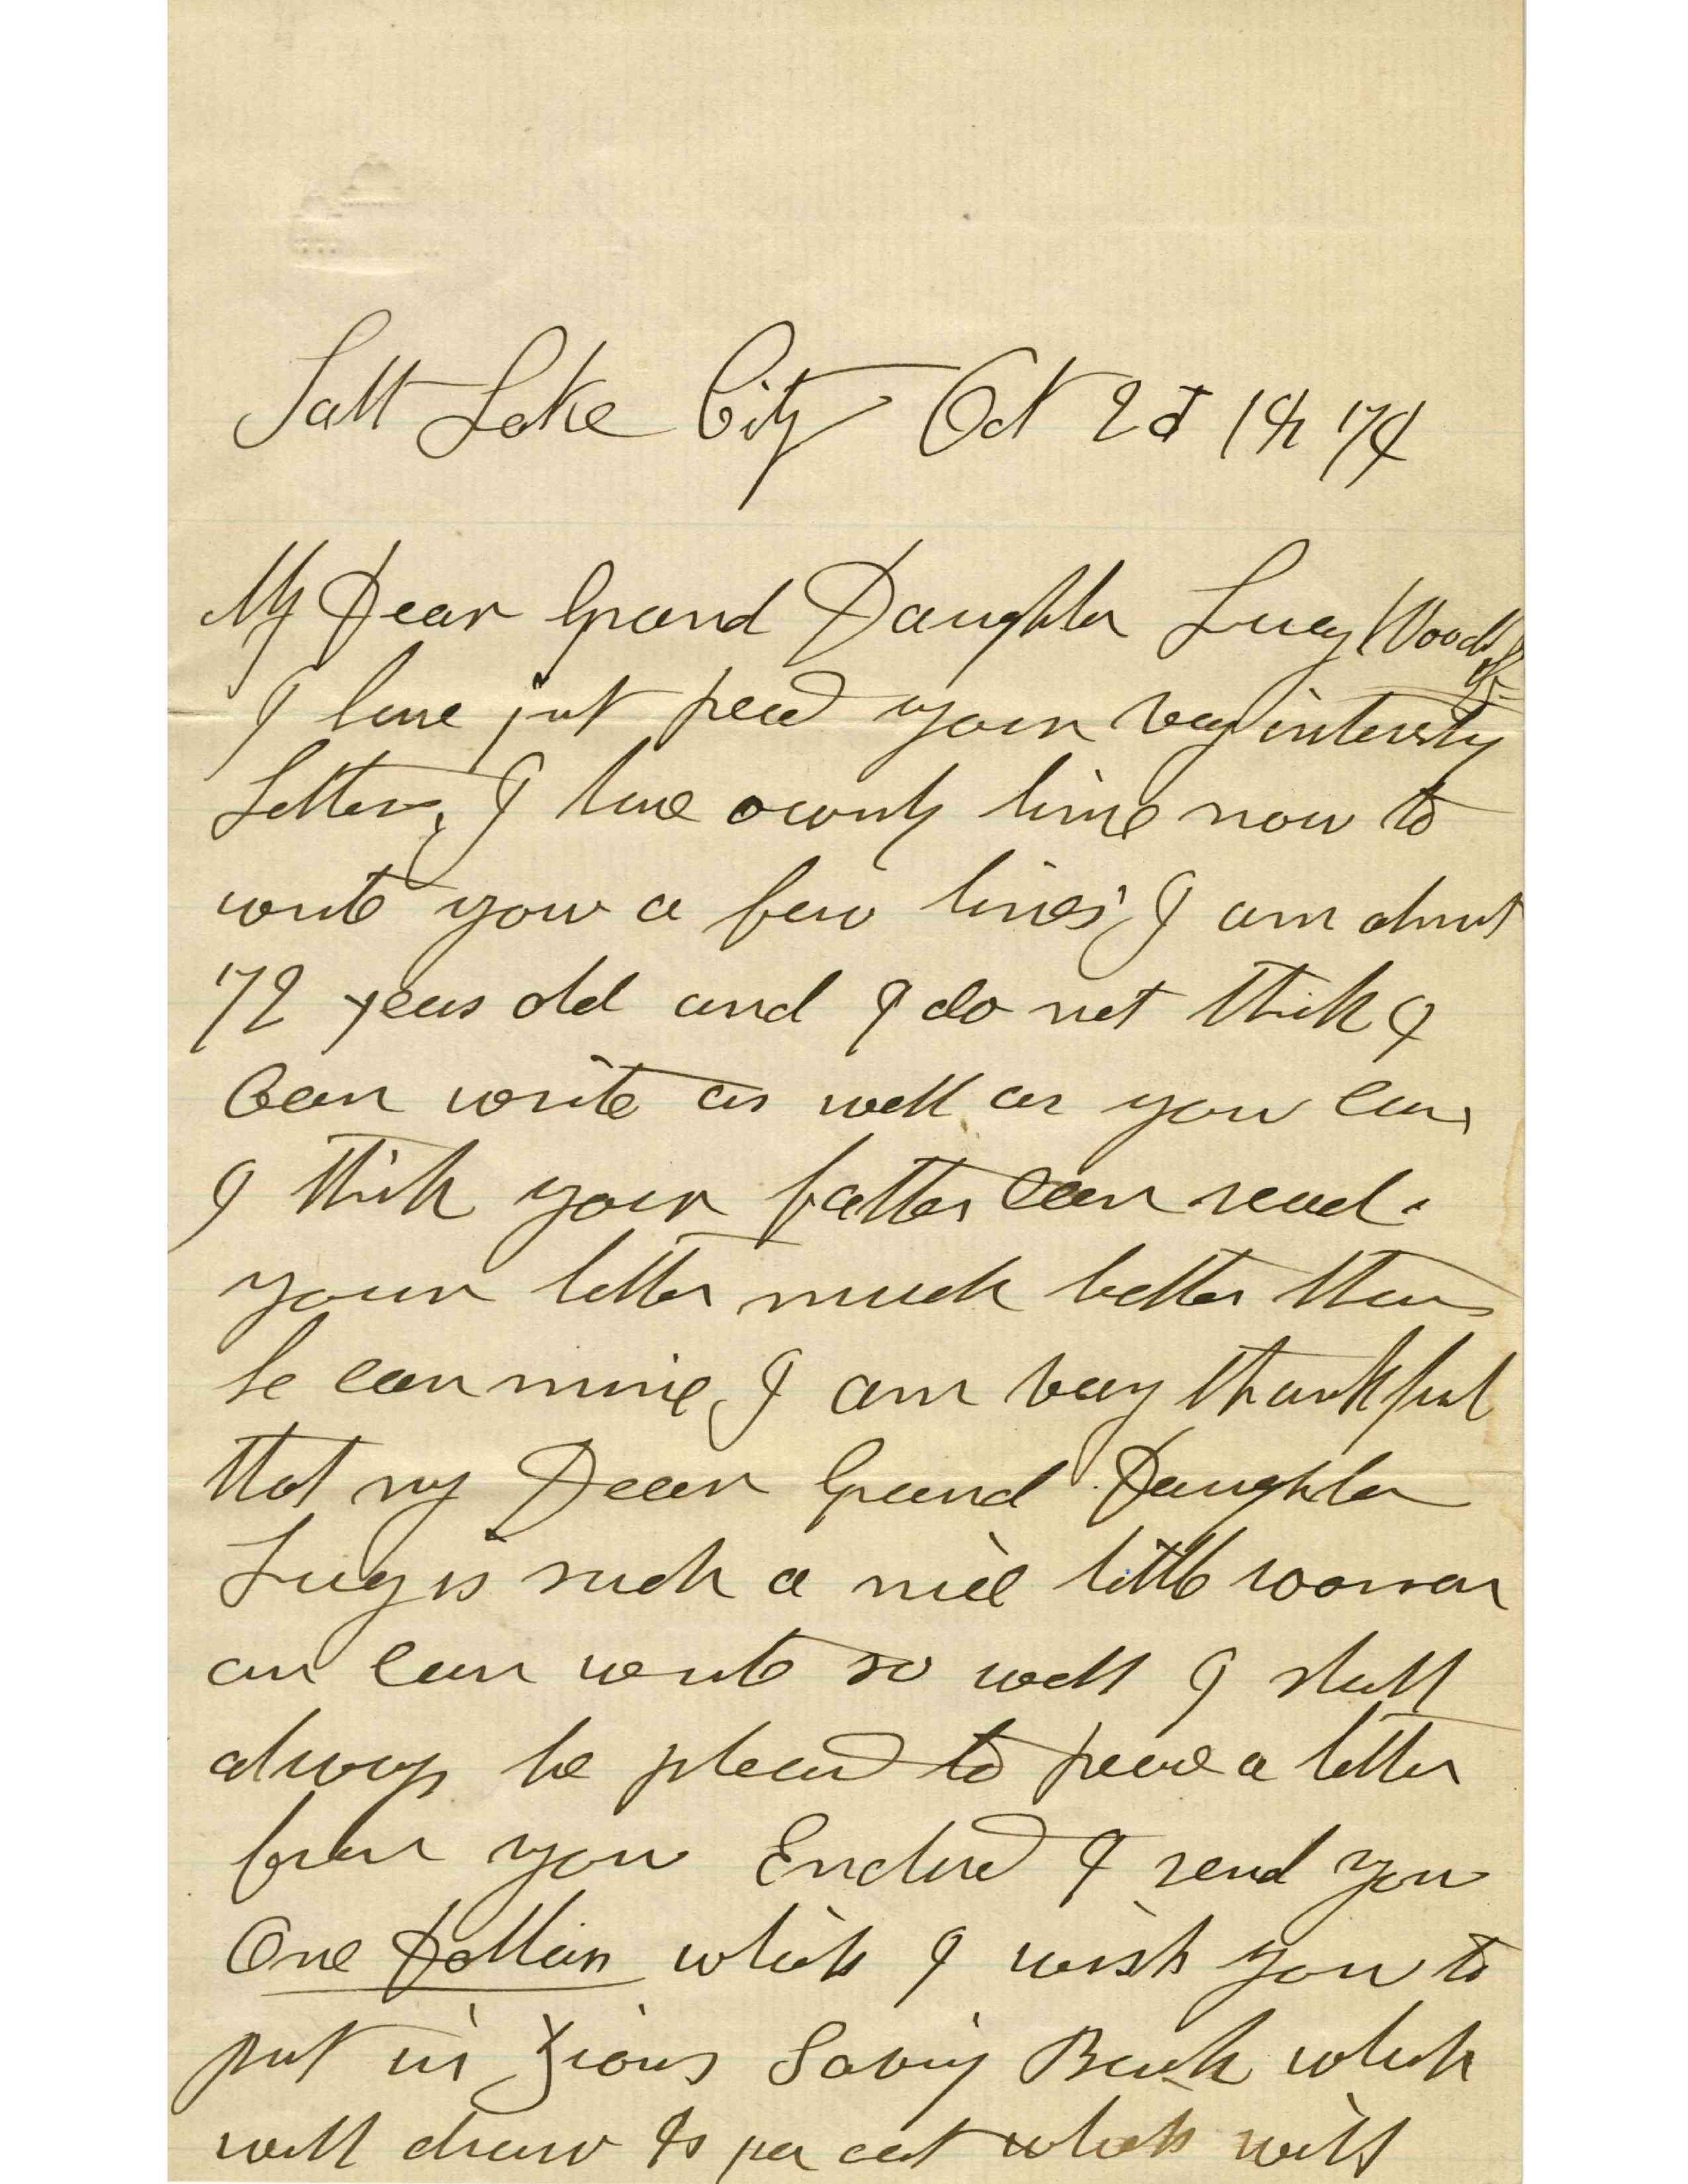 Salt Lake City Oct 2d 18 74
My Dear Grand Daughter Lucy Woodruff
I have just recd your very interesty
Letter, I have ownly time now to
write you a few lines I am almst
72 years old and I do not think I
Can write as well as you can,
I think your father Can read
your letter much better than
he can mine, I am very thankful
that my Dear Grand Daughter
Lucy is such a nice little woman
an can write so well I shall
always be pleasd to receive a letter
from you Enclosd I send you
One Dollar which I wish you to
put in Zions Saving Bank which
will draw per cent which will